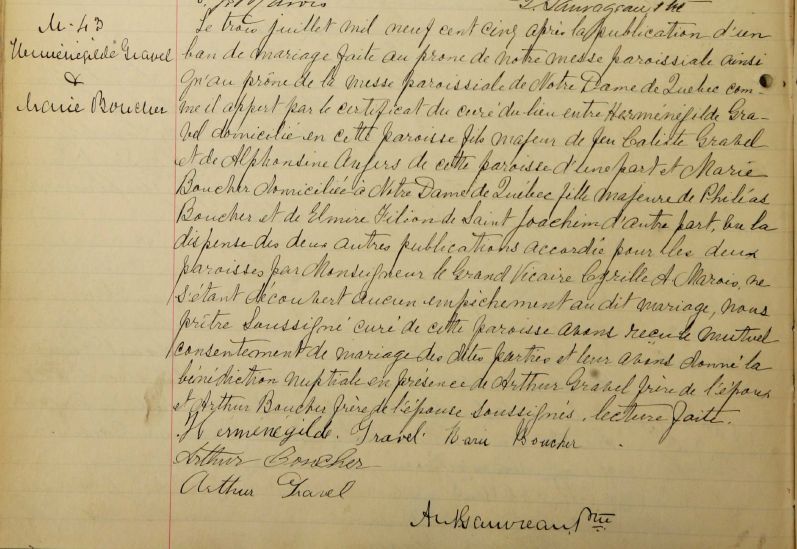 L. Sauvageau, Ptre
M-43
Herménégilde Gravel
&
Marie Boucher
Le trois juillet mil neuf cent cinq après la publication d'un
ban de mariage faite au prone de notre messe paroissiale ainsi
qu'au prône de la messe paroissiale de Notre Dame de Quebec com-
me il appert par le certificat du curé du lieu entre Herménégilde Gra-
vel domicilié en cette paroisse fils majeur de feu Calixte Gravel
et de Alphonsine Angers de cette paroisse d'une part et Marie
Boucher domiciliée à Notre Dame de Québec fille majeure de Philéas
Boucher et de Elmire Filion de Saint Joachim d'autre part, vu la
dispense des deux autres publications accordée pour les deux
paroisses par Monseigneur le Grand Vicaire Cyrille A. Marois, ne
s'étant découvert aucun empêchement au dit mariage, nous
prêtre soussigné curé de cette paroisse avons reçu le mutuel
consentement de mariage des dites parties et leur avons donné la
bénédiction nuptiale en présence de Arthur Gravel frère de l'époux
et Arthur Boucher frère de l'épouse soussignés. lecture faite.
Herménégilde. Gravel. Marie Boucher
Arthur Boucher
Arthur Gravel
Ptre